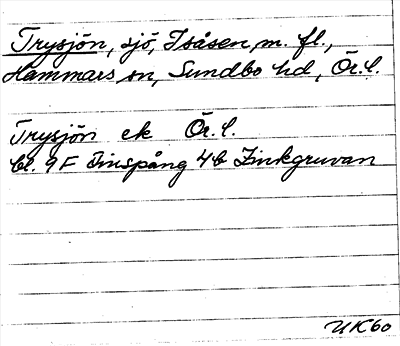 Trysjön, sjö, Isåsen, m. fl.,
Hammars sn, Sundbo hd, Ör. l.
Trysjön ek Ör. l.
bl. 9 F Finspång 4 b Zinkgruvan
UK60